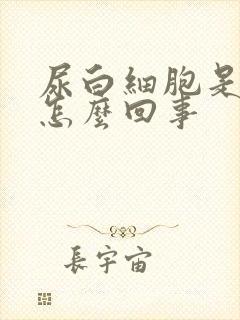 尿白細胞是
怎麼回事
長宇宙